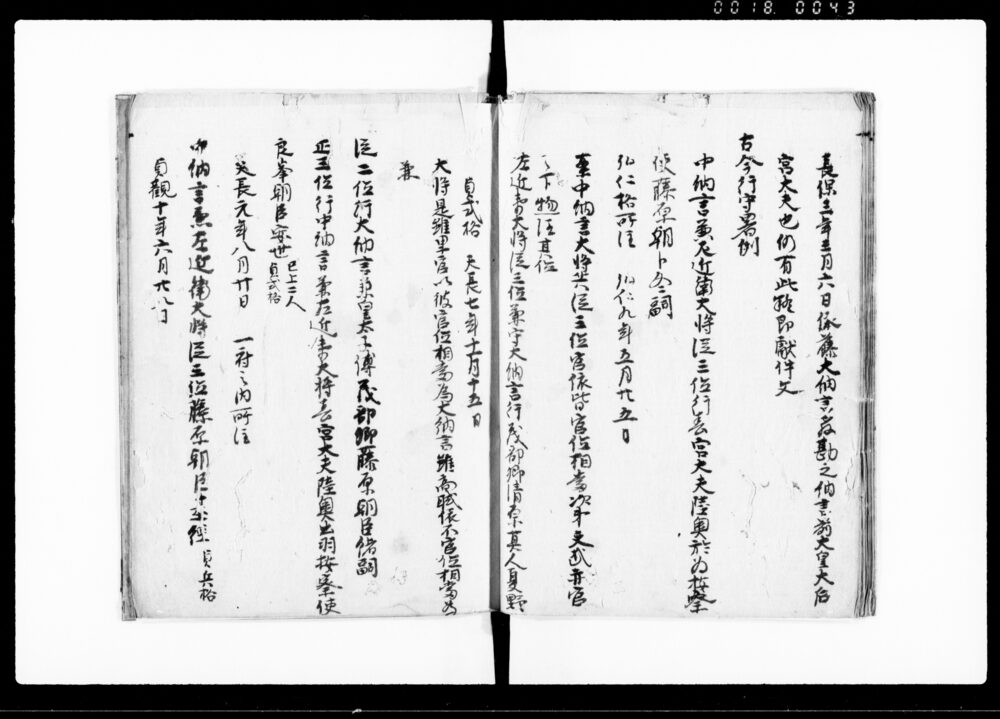 0018 0043
長保三年三月六日依藤大納言芳勘之納言前大皇大后
宮大夫也仍有此抄即献件文
古今行守署例
中納言兼左近衛大将従三位行春宮大夫陸奥出羽按察
使藤原朝臣冬嗣
弘仁格所注 弘仁九年五月廿五日
案中納言大将共従三位官依皆官位相当次第文武弁官
之下物注其位
左近衛大将従三位兼守大納言行民部卿清原真人夏野
貞式格 天長七年十一月十五日
大将是雖里官以彼官位相当為大納言雖高職依不官位相当為
兼
従二位行大納言兼皇太子傅民部卿藤原朝臣緒嗣
正三位行中納言兼左近衛大将春宮大夫陸奥出羽按察使
良峯朝臣安世 已上二人 貞式格
天長元年八月廿日 一府之内所注
中納言兼左近衛大将従三位藤原朝臣基経 貞兵格
貞観十年六月廿八日